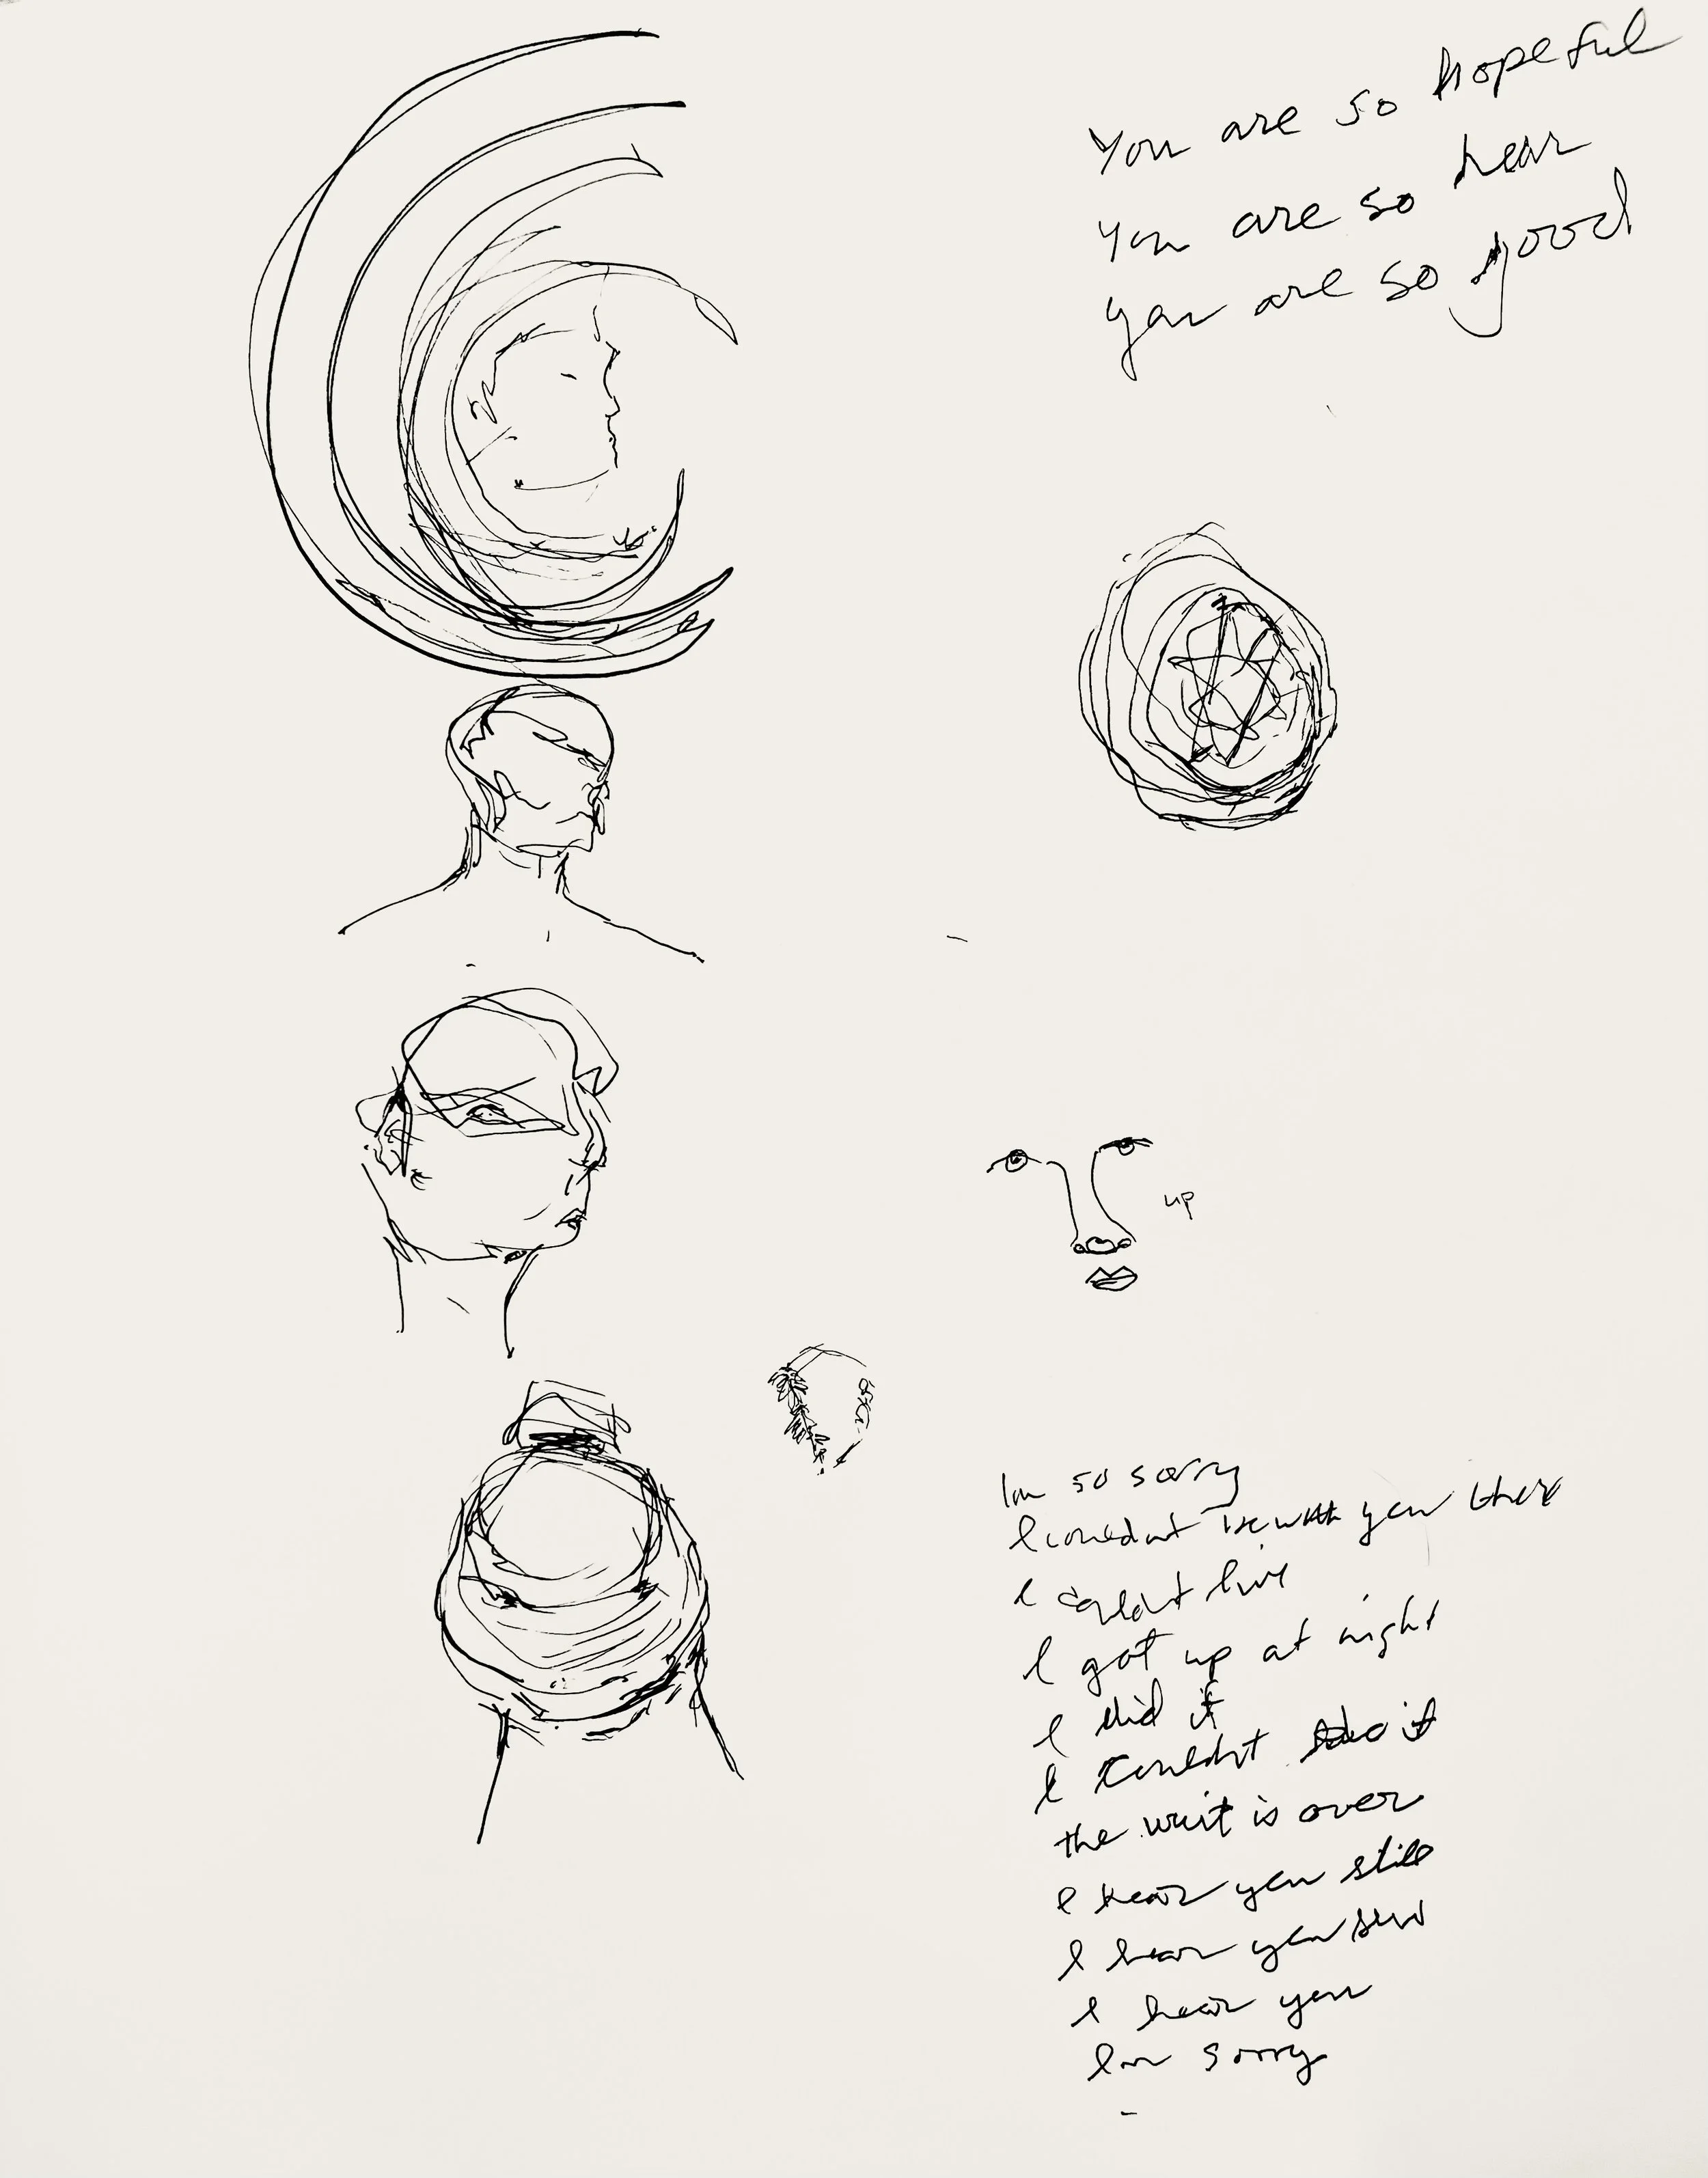 You are so hopeful
You are so hear
you are so good
up
Im so sorry
I couldnt be with you there
I couldnt live
I got up at night
I did it
I couldnt do it
the wait is over
I hear you still
I hear you still
I hear you
Im sorry